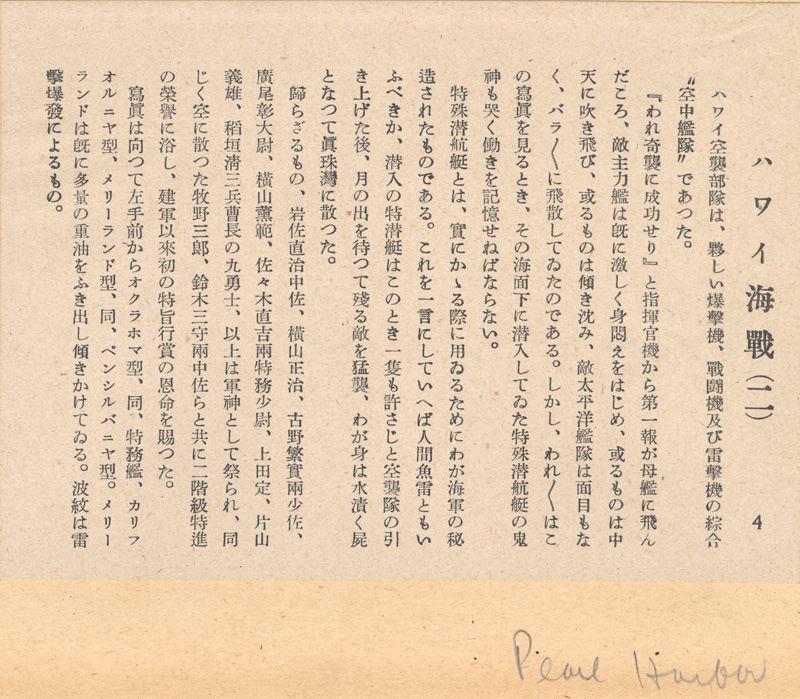 ハワイ海戰(二) 4
ハワイ空襲部隊は、夥しい爆擊機、戰鬪機及び雷擊機の綜合
〝空中艦隊〟であつた。
『われ奇襲に成功せり』と指揮官機から第一報が母艦に飛ん
だころ、敵主力艦は旣に激しく身悶えをはじめ、或るものは中
天に吹き飛び、或るものは傾き沈み、敵太平洋艦隊は面目もな
く、バラ〳〵に飛散してゐたのである。しかし、われ〳〵はこ
の寫眞を見るとき、その海面下に潜入してゐた特殊潜航艇の鬼
神も哭く働きを記憶せねばならない。
特殊潜航艇とは、實にかゝる際に用ゐるためにわが海軍の秘
造されたものである。これを一言にしていへば人間魚雷ともい
ふべきか、潜入の特潜艇はこのとき一隻も許さじと空襲隊の引
き上げた後、月の出を待つて殘る敵を猛襲、わが身は水漬く屍
となつて眞珠灣に散つた。
歸らざるもの、岩佐直治中佐、橫山正治、古野繁實兩少佐、
廣尾彰大尉、橫山薰範、佐々木直吉兩特務少尉、上田定、片山
義雄、稻垣淸三兵曹長の九勇士、以上は軍神として祭られ、同
じく空に散つた牧野三郎、鈴木三守兩中佐らと共に二階級特進
の榮譽に浴し、建軍以來初の特旨行賞の恩命を賜つた。
寫眞は向つて左手前からオクラホマ型、同、特務艦、カリフ
オルニヤ型、メリーランド型、同、ペンシルバニヤ型。メリー
ランドは旣に多量の重油をふき出し傾きかけてゐる。波紋は雷
擊爆發によるもの。
Pearl Harbor